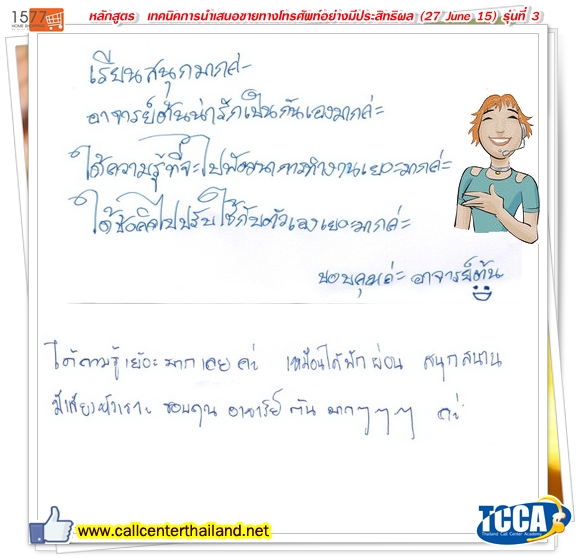 1577
HOME SHOPPING
หลักสูตร เทคนิคการนำเสนอขายทางโทรศัพท์อย่างมีประสิทธิผล (27 June 15) รุ่นที่ 3
เรียนสนุกมากค่ะ
อาจารย์ต้นน่ารักเป็นกันเองมากค่ะ
ได้ความรู้ที่จะไปพัฒนาการทำงานเยอะมากค่ะ
ได้ข้อคิดไปปรับใช้กับตัวเองเยอะมากค่ะ
ขอบคุณค่ะ อาจารย์ต้น
ได้ความรู้เยอะมากเลยค่ะ เหมือนได้พักผ่อน สนุกสนาน
มีเสียงหัวเราะ ขอบคุณ อาจารย์ ต้น มากๆๆๆ ค่ะ
www.callcenterthailand.net
TCCA
Thailand Call Center Academy